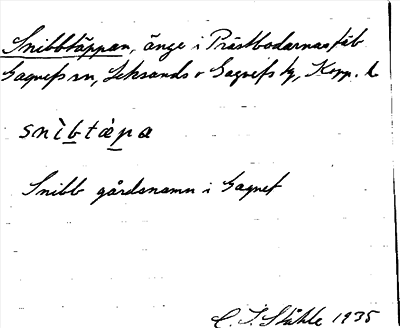 Snibbtäppan, änge i Prästbodarnas fäb
Gagnefs sn, Leksands o Gagnefs tg, Kopp. l.
snìb̲tàp̲a
Snibb gårdsnamn i Gagnef
C. I. Ståhle 1935